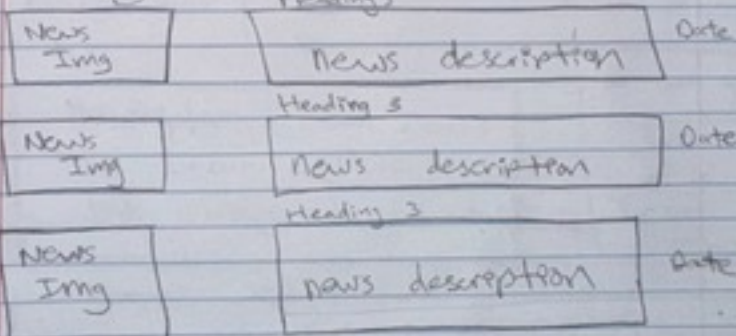 Heading
News
Img
news description
Date
Heading 3
News
Img
news description
Date
Heading 3
News
Img
news description
Date